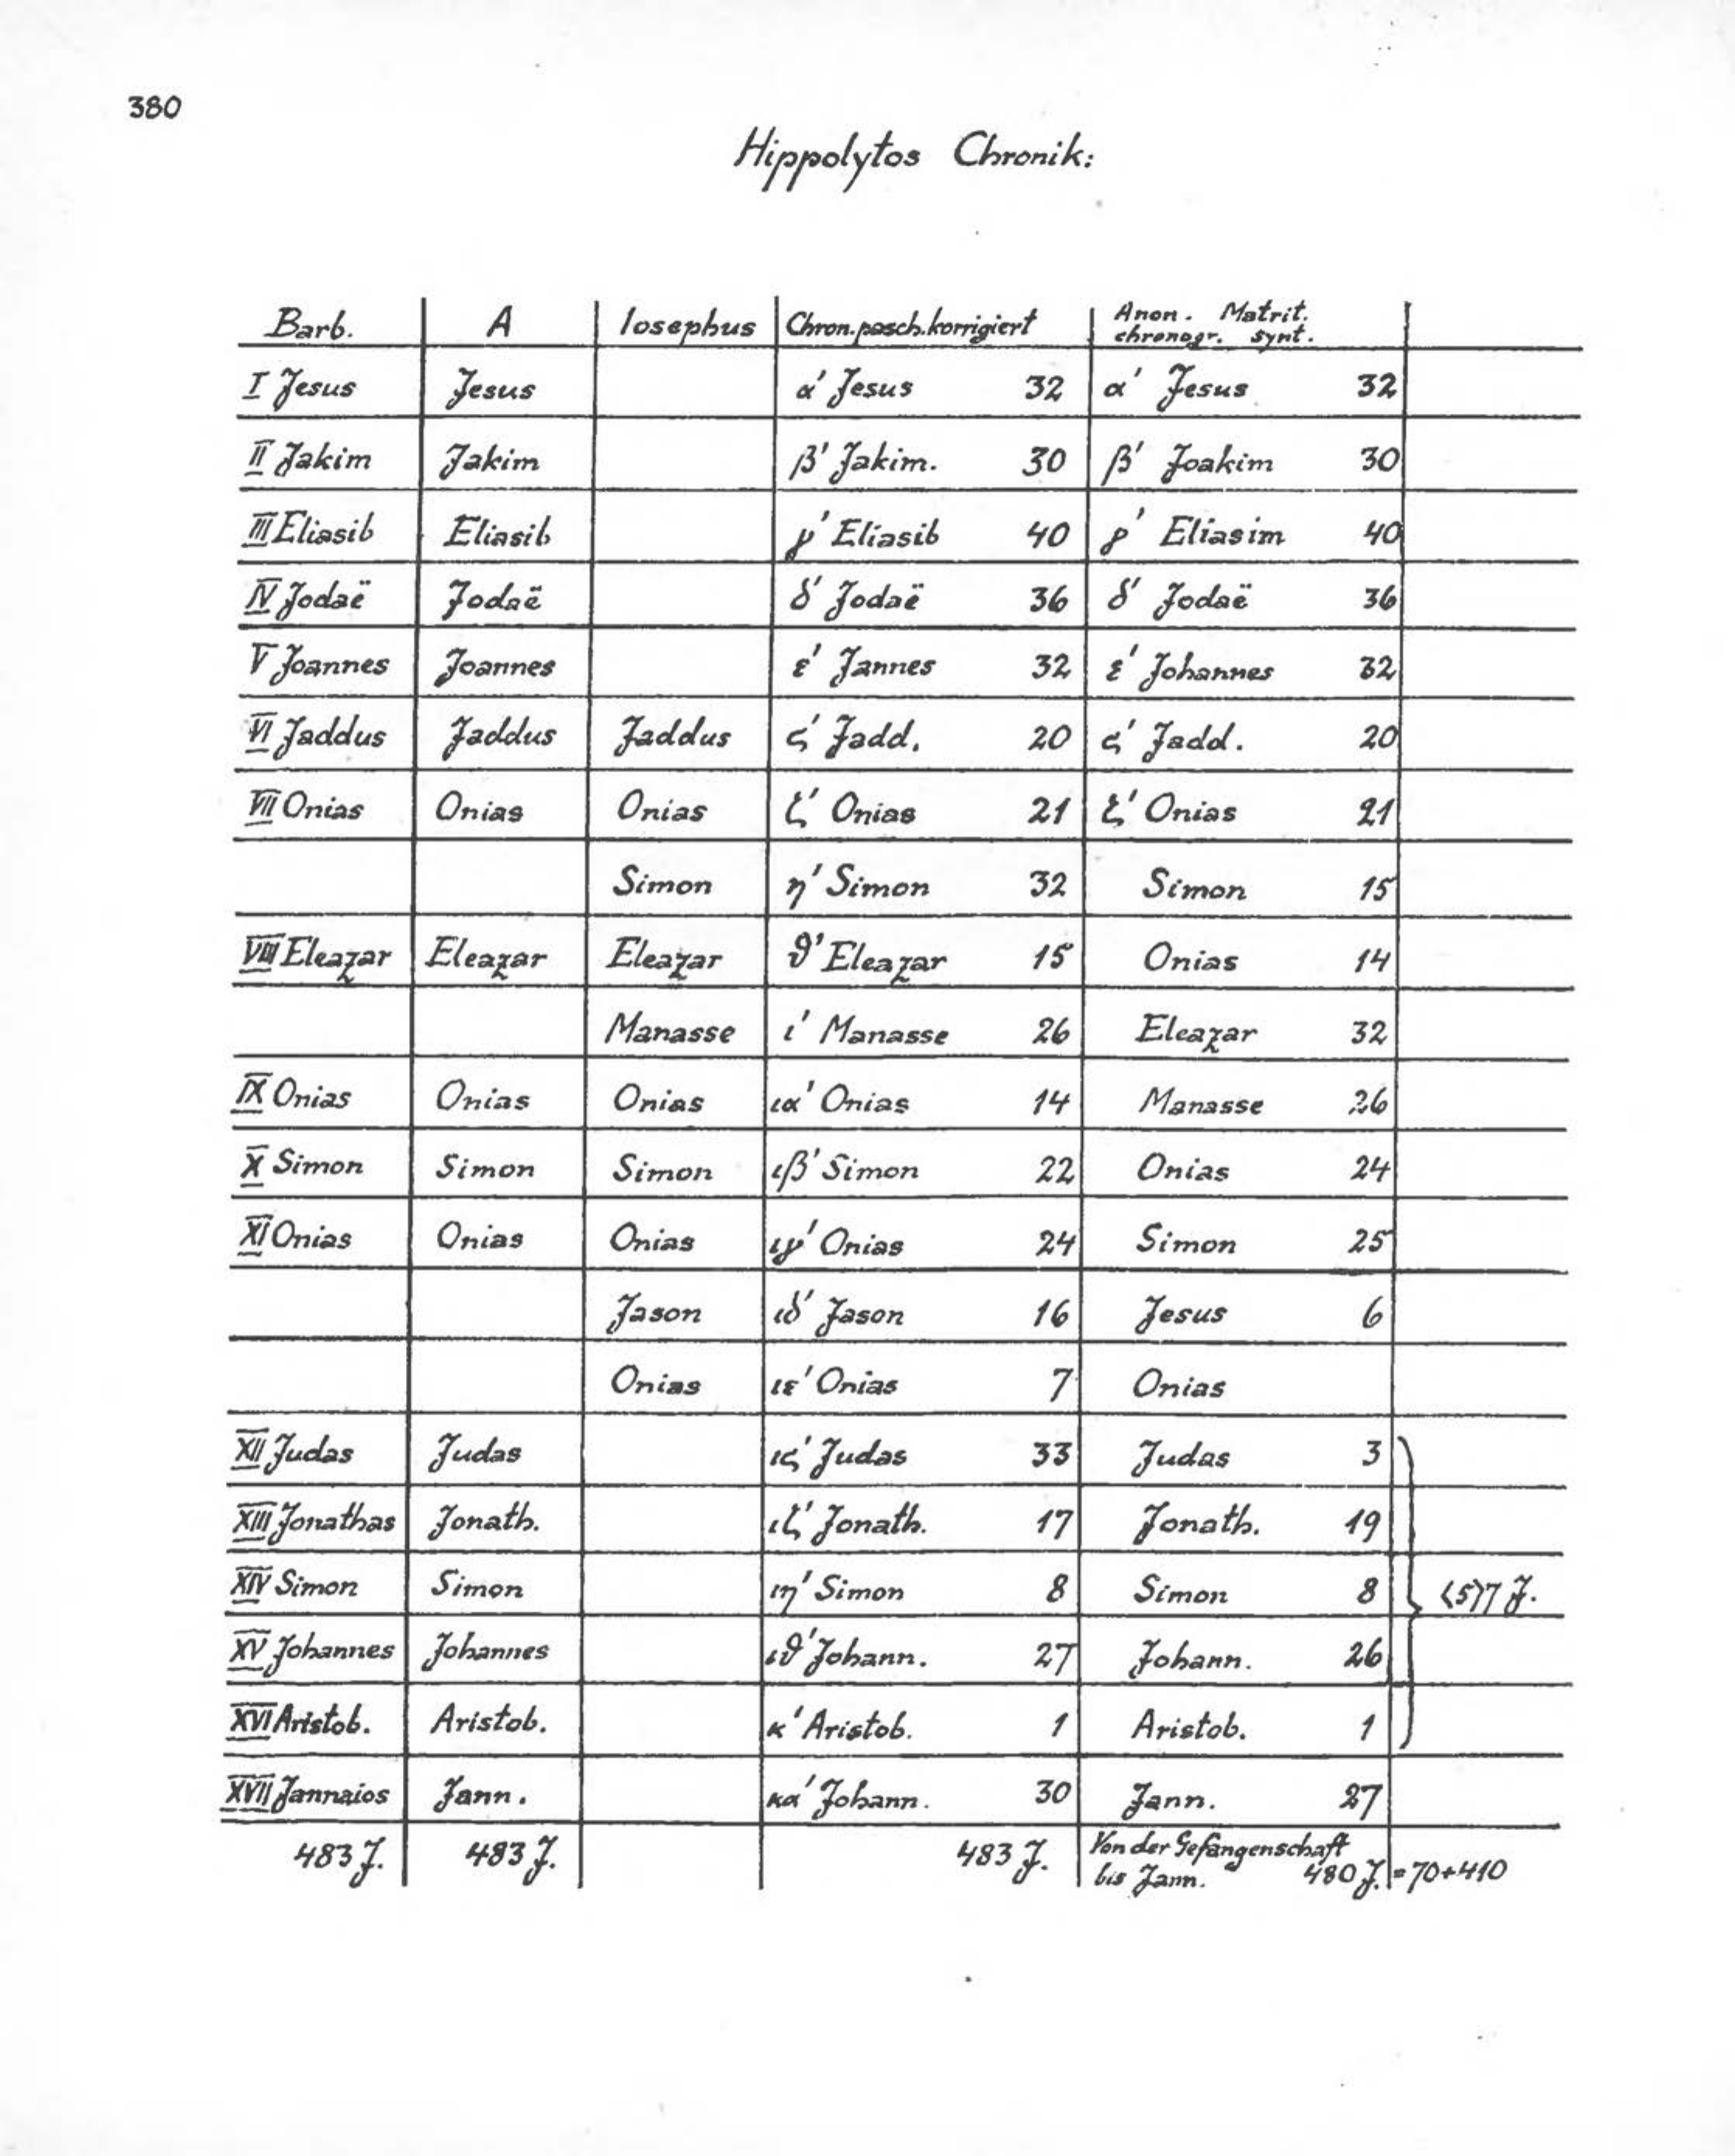 380
Hippolytos Chronik:
Barb. A Iosephus Chron.pasch.korrigiert Anon. Matrit. chronogr. Synt.
I Jesus Jesus α' Jesus 32 α' Jesus 32
II Jakim Jakim β' Jakim. 30 β' Joakim 30
III Eliasib Eliasib γ' Eliasib 40 γ' Eliasim 40
IV Jodaë Jodaë δ' Jodaë 36 δ' Jodaë 36
V Joannes Joannes ε' Jannes 32 ε' Johannes 32
VI Jaddus Jaddus Jaddus ϛ' Jadd. 20 ϛ' Jadd. 20
VII Onias Onias Onias ζ' Onias 21 ζ' Onias 21
Simon η' Simon 32 Simon 15
VIII Eleazar Eleazar Eleazar ϑ' Eleazar 15 Onias 14
Manasse ι' Manasse 26 Eleazar 32
IX Onias Onias Onias ια' Onias 14 Manasse 26
X Simon Simon Simon ιβ' Simon 22 Onias 24
XI Onias Onias Onias ιγ' Onias 24 Simon 25
Jason ιδ' Jason 16 Jesus 6
Onias ιε' Onias 7 Onias
XII Judas Judas ιϛ' Judas 33 Judas 3
XIII Jonathas Jonath. ιζ' Jonath. 17 Jonath. 19
XIV Simon Simon ιη' Simon 8 Simon 8 ⟨5⟩7 J.
XV Johannes Johannes ιϑ' Johann. 27 Johann. 26
XVI Aristob. Aristob. κ' Aristob. 1 Aristob. 1
XVII Jannaios Jann. κα' Johann. 30 Jann. 27
483 J. 483 J. 483 J. Von der Gefangenschaft
bis Jann. 480 J. = 70+410